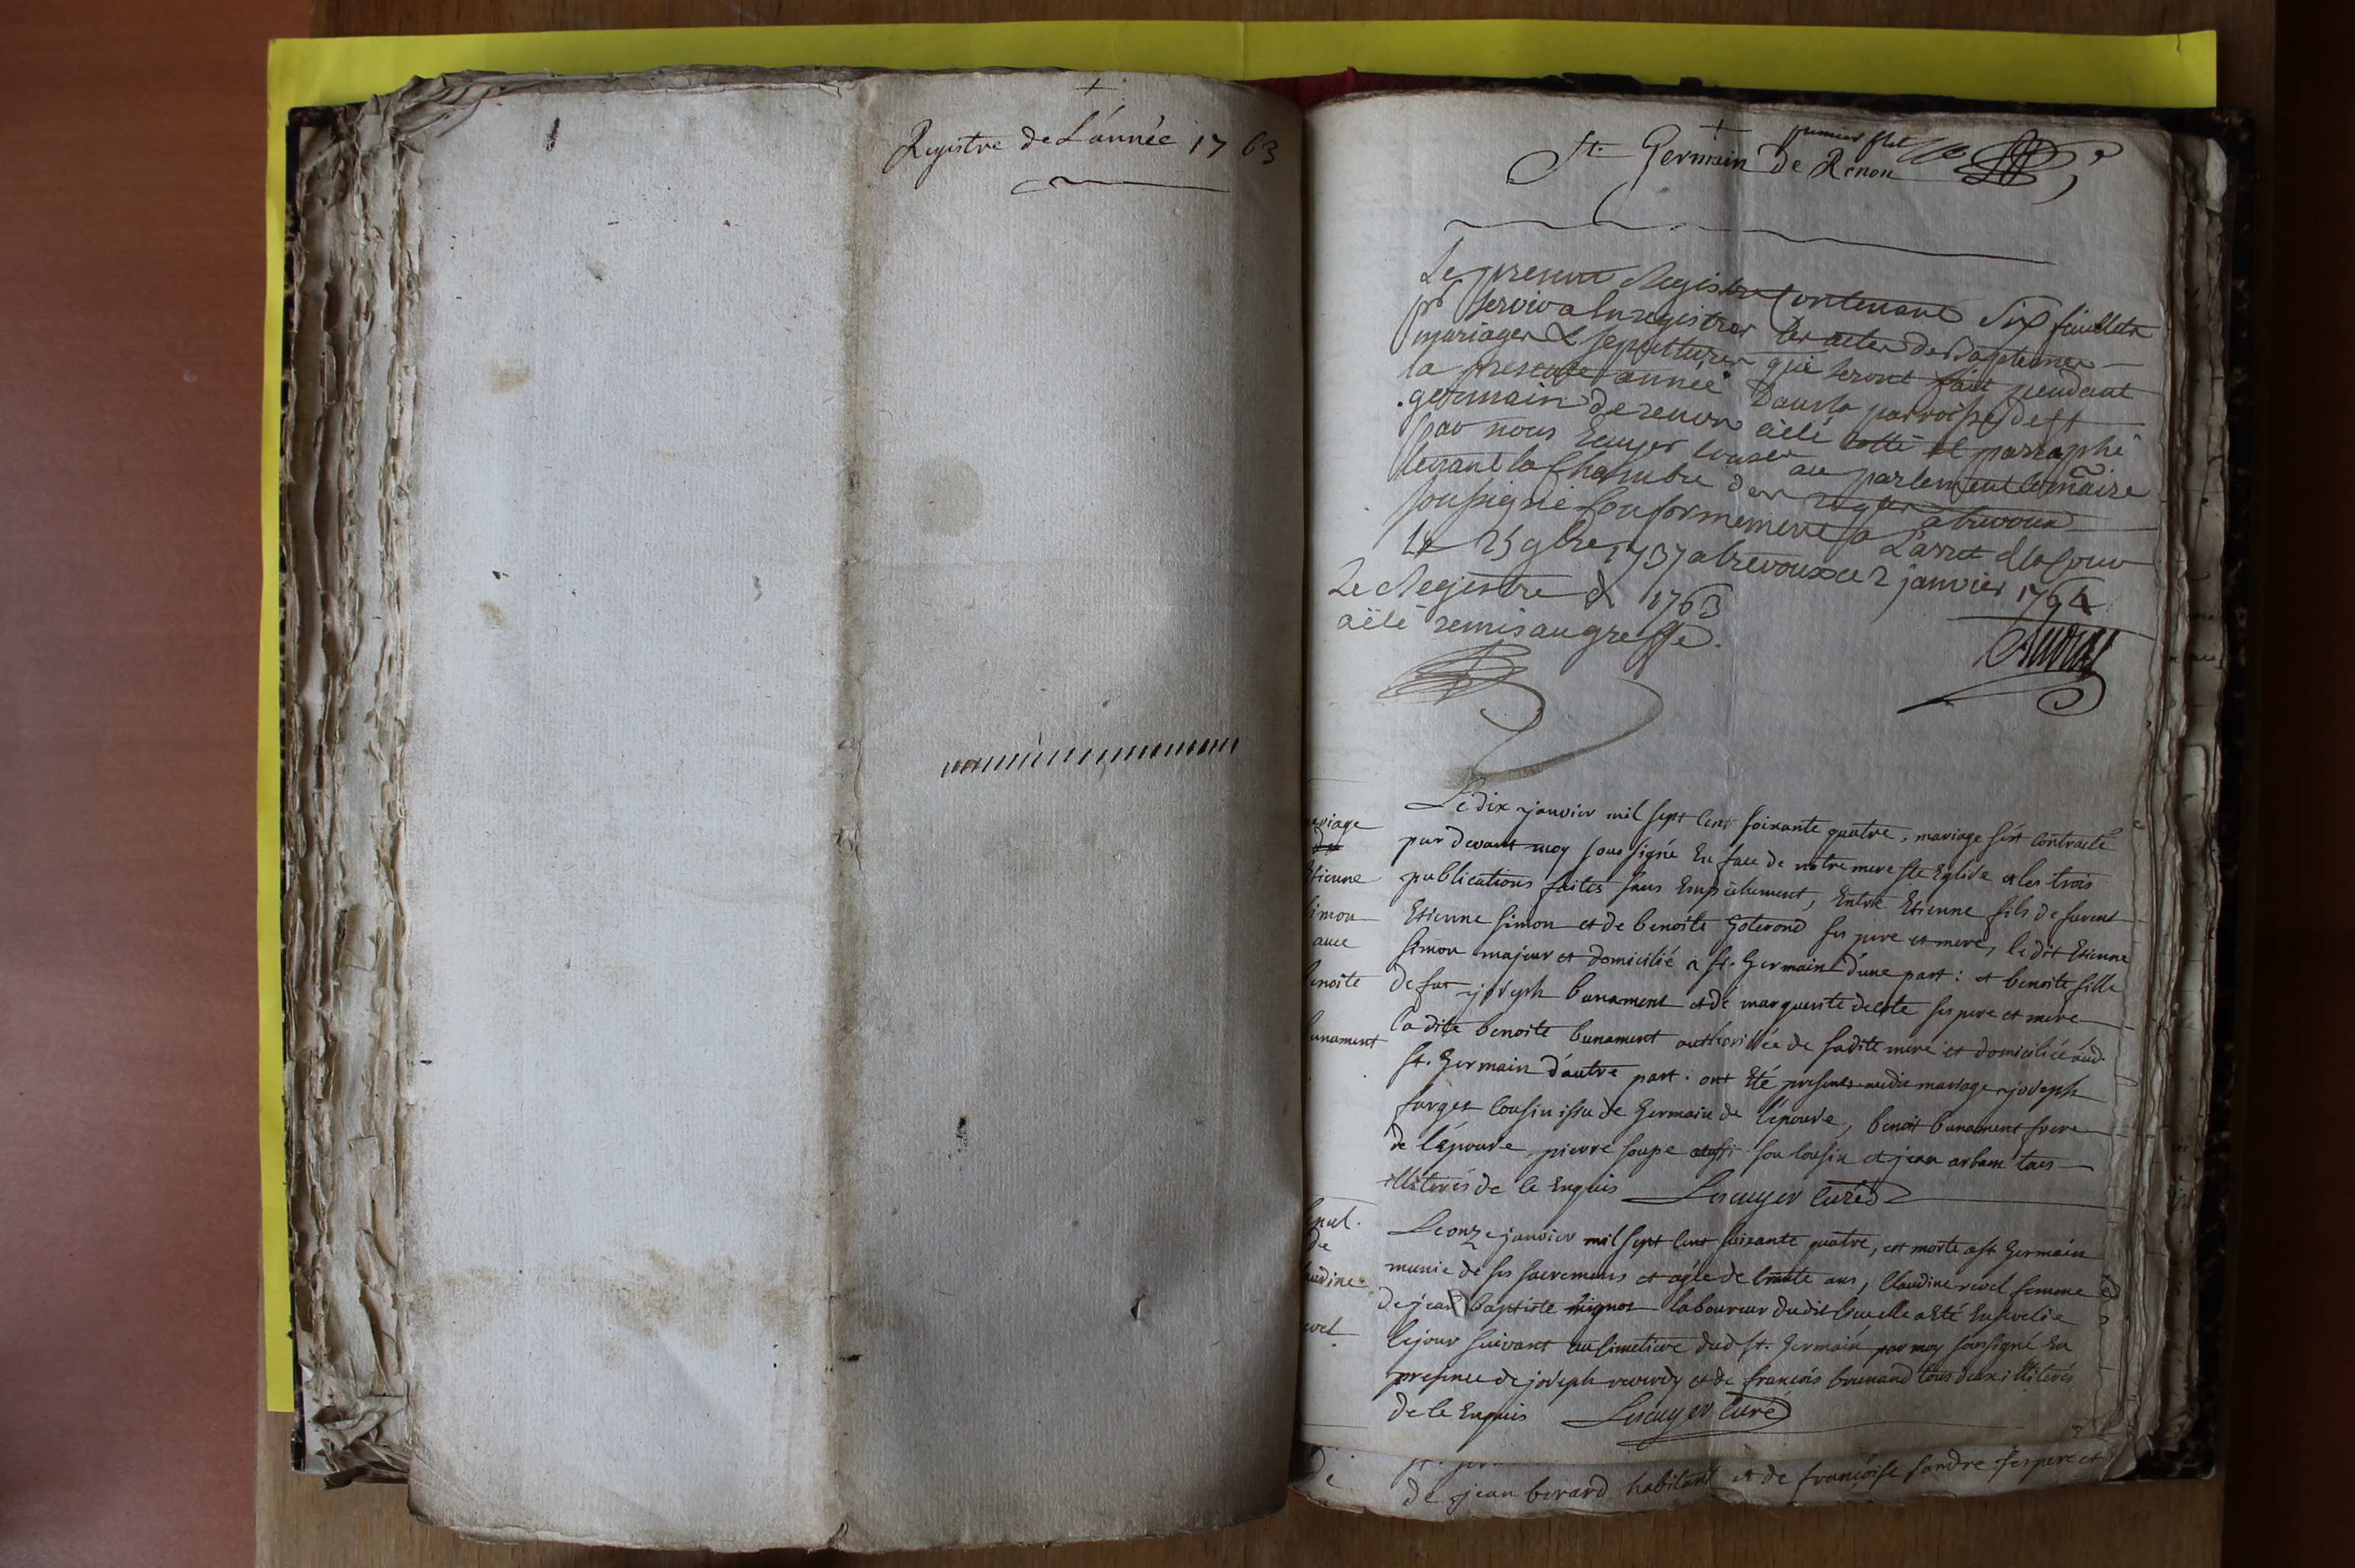 +
Registre de L'année 1763
+
premier flet
St. Germain de Renon
Le present Registre Contenant Six feuillets
pr servir a Enregistrer les actes de Baptemes
mariages & sepultures qui seront fait pendant
la presente année Dans la parroisse de St
germain de renon aété cotté et parraphé
par nous Ecuyer au parlement
tenant la Chambre des a trevoux
soussigné Conformement a L'arret de la Cour
1737 a trevoux ce 2 janvier 1764
Le Registre de 1763
aëté remis au greffe.
mariage
Etienne
simon
avec
benoite
bunament
Le dix janvier mil sept cent soixante quatre, mariage s'est contracté
par devant moy soussigné En face de notre mere Ste Eglise et les trois
publications faites sans Empechement, Entre Etienne fils de furent
Etienne simon et de benoite ses pere et mere, le dit Etienne
simon majeur et domicilié a St. Germain d'une part : et benoite fille
de fut joseph bunament et de marguerite ses pere et mere
la dite benoite bunament authorisée de sadite mere et domiciliée aud.
St. Germain d'autre part. ont Eté presents audit mariage joseph
farget cousin issu de Germain de l'epouse, benoit bunament frere
de l'Epouse pierre soupe aussi son cousin et jean arbam tous
illiterés de ce Enquis Lescuyer curé
sepul.
de
claudine
revel
Le onze janvier mil sept cent soixante quatre, est morte a St Germain
munie de ses sacremens et agée de trante ans, Claudine revel femme
de jean baptiste mignot laboureur dudit lieu elle a Eté Ensevelie
le jour suivant au simetiere dud St. Germain par moy soussigné En
presence de joseph reverdy et de francois brunand tous deux illiterés
de ce Enquis Lescuyer curé
de jean berard habitant et de françoise sandre ses pere et